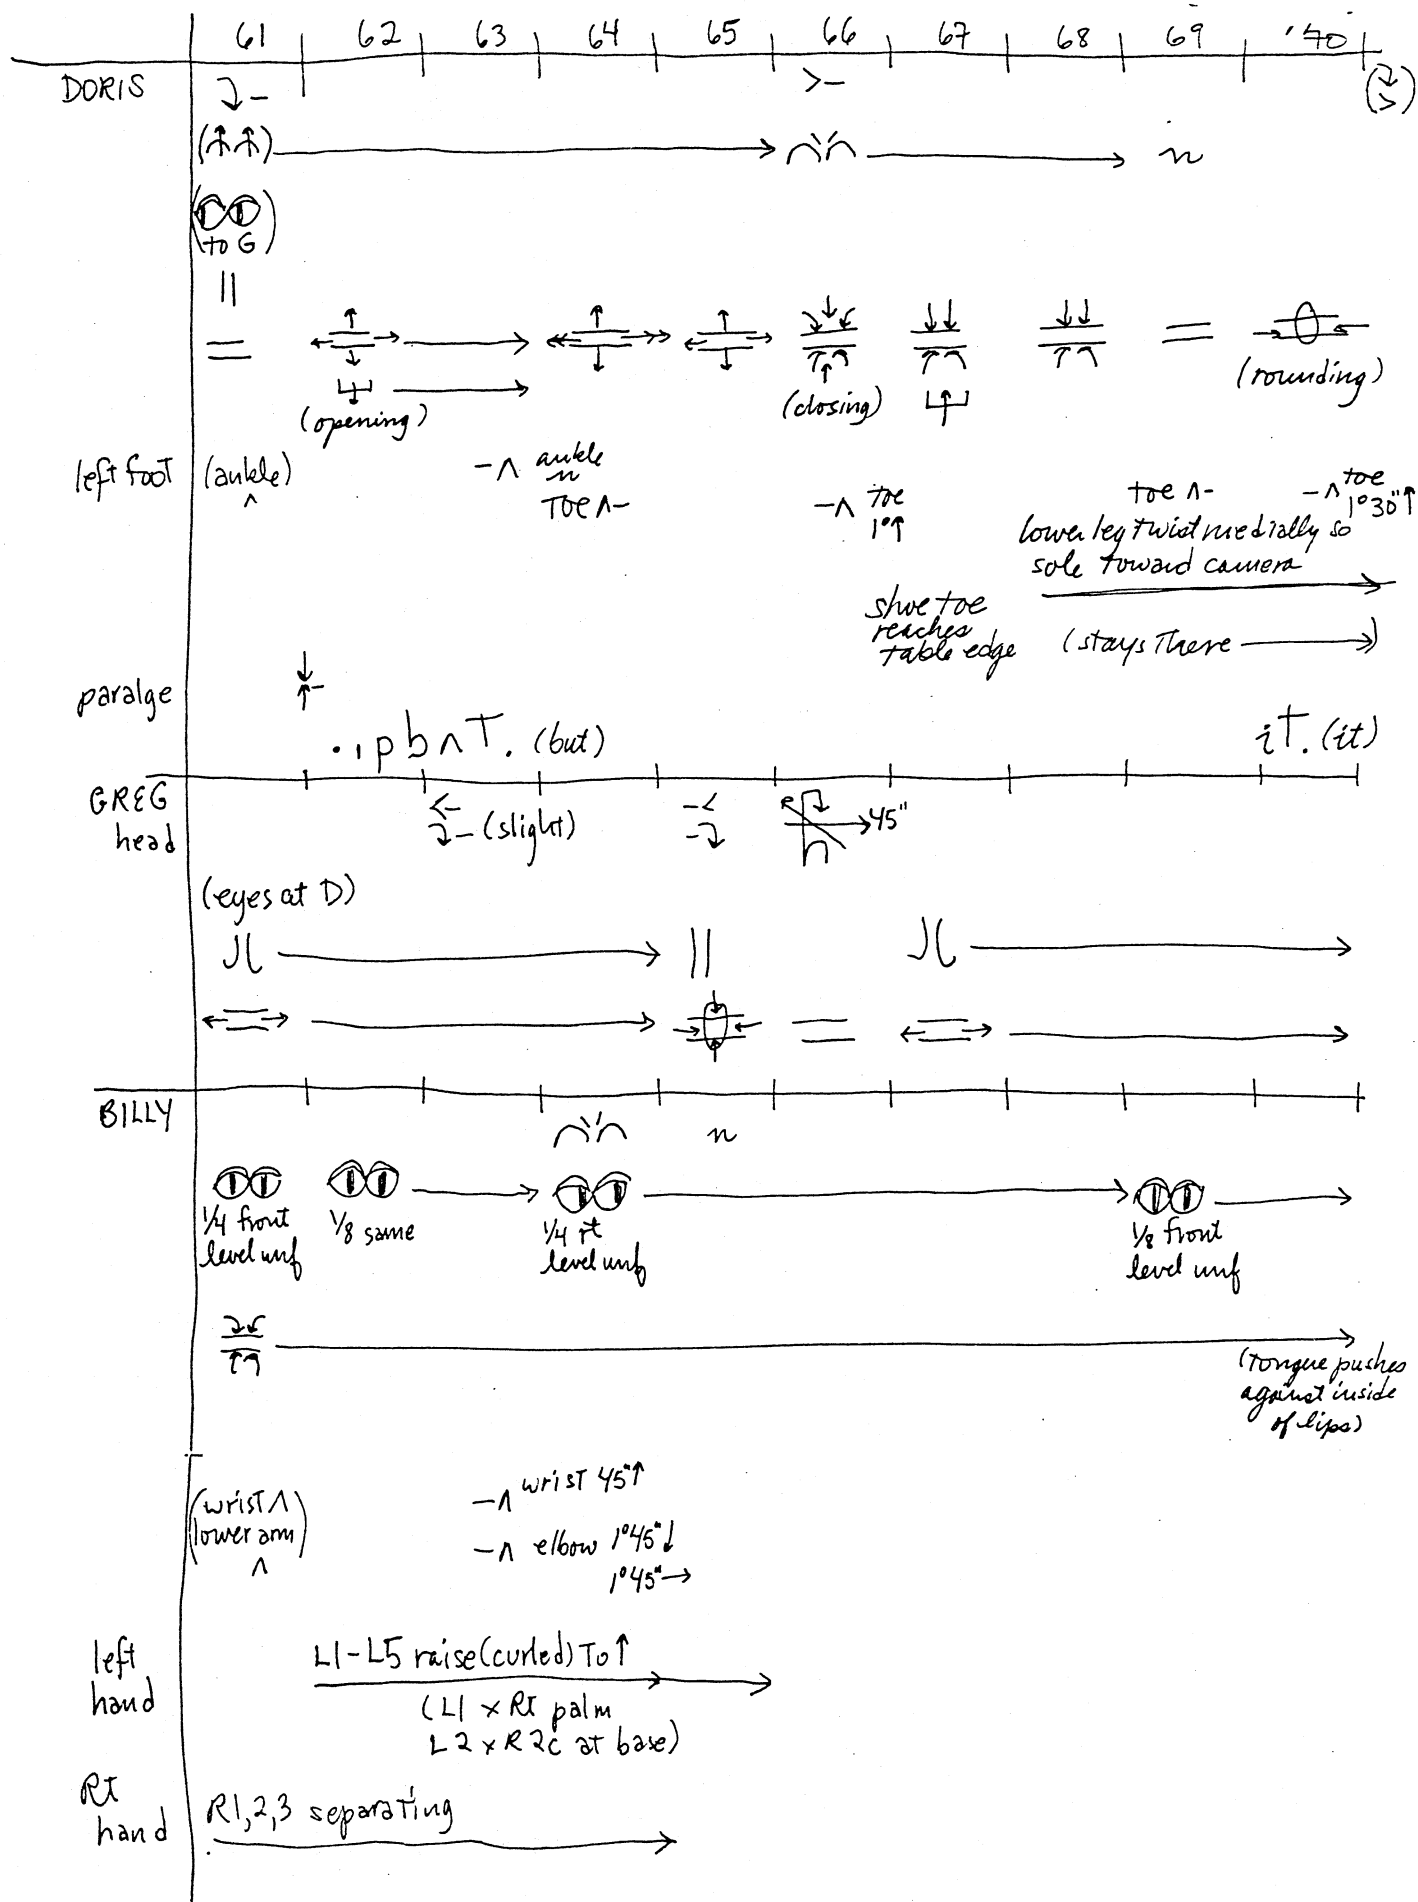 61 62 63 64 65 66 67 68 69 '70
DORIS
(to G)
(opening) (closing) (rounding)
left foot (ankle) ankle toe 1° 30"↑
n
TOE ʌ- -ʌ toe toe ʌ-
1°↑
lower leg twist medially so
sole toward camera
shoe toe
reaches
table edge (stays there →)
paralge
.ıpbʌT. (but) iT. (it)
GREG
head (slight) 45"
(eyes at D)
BILLY
n
1/4 front 1/8 same 1/4 rt 1/8 front
level unf level unf level unf
(tongue pushes
against inside
of lips)
(wrist ʌ -ʌ wrist 45"↑
lower arm) -ʌ elbow 1°45"↓
ʌ 1°45"→
left L1-L5 raise (curled) To ↑
hand (L1 x Rt palm
L2 x R2c at base)
Rt R1,2,3 separating
hand